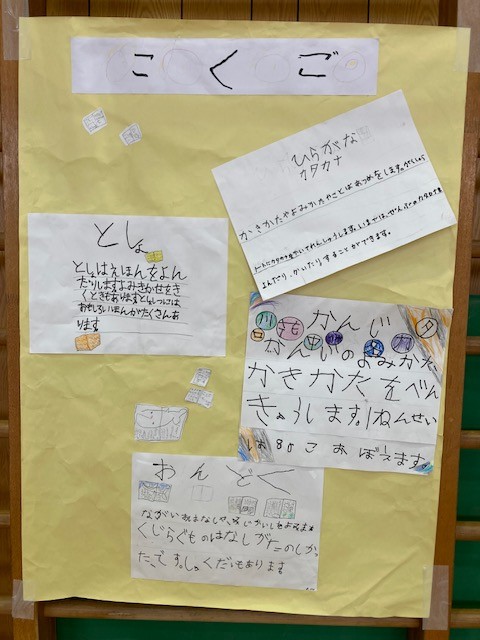 こくご
ひらがな
カタカナ
かきかたやよみかたやことばあつめをします。
よんだり、かいたりすることができます。
としょ
としょはえほんをよん
だりしますよみきかせをき
くときもありますとしょしつには
おもしろいほんがたくさんあ
ります
かんじ
かんじのよみかた
かきかたをべん
きょうします。1ねんせい
は80こおぼえます。
おんどく
ながいおはなしや、みじかいしをよみます
くじらぐものはなしがたのしか
たです。しゅくだいもあります